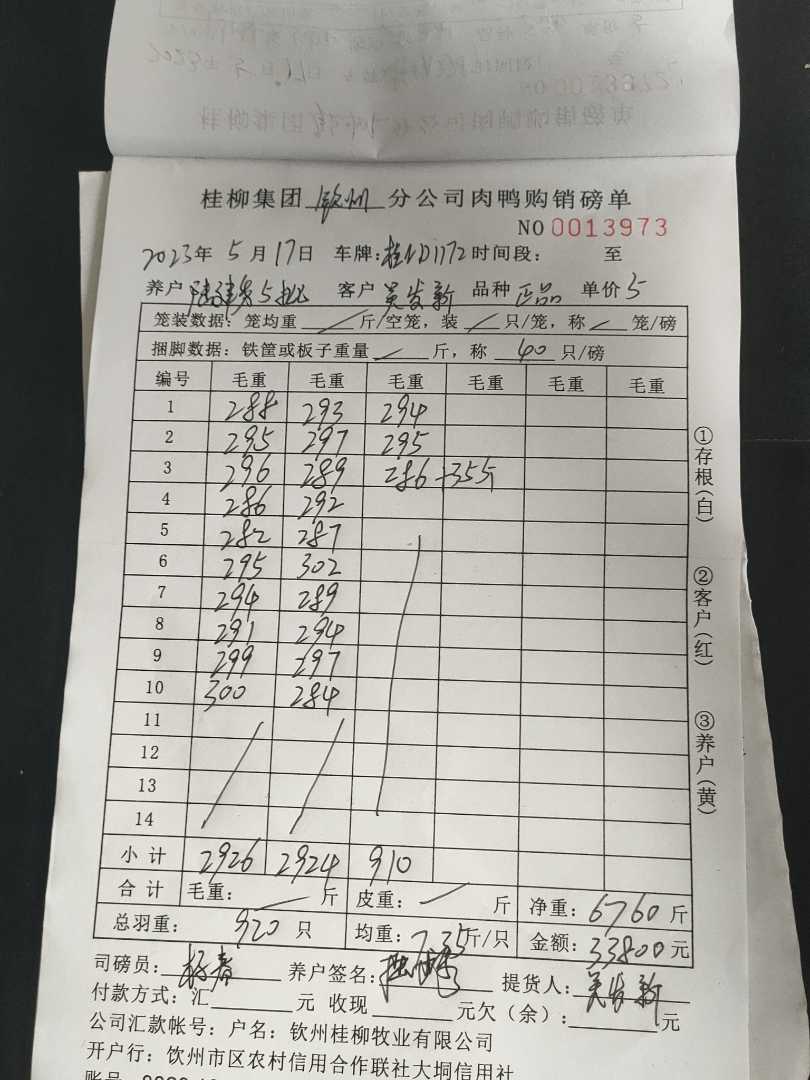 桂柳集团 钦州 分公司肉鸭购销磅单
NO 0013973
2023年 5月17日 车牌:桂ND1172 时间段: 至
养户 5批 客户 吴发新 品种 正品 单价 5
笼装数据: 笼均重 斤/空笼, 装 只/笼, 称 笼/磅
捆脚数据: 铁筐或板子重量 斤, 称 40 只/磅
编号 毛重 毛重 毛重 毛重 毛重 毛重
1 288 293 294
2 295 297 295
3 296 289 286+35斤
4 286 292
5 282 287
6 295 302
7 294 289
8 291 294
9 299 297
10 300 284
11
12
13
14
小计 2926 2924 910
合计 毛重: 斤 皮重: 斤 净重: 6760 斤
总羽重: 920 只 均重: 7.35斤/只 金额: 33800元
司磅员: 养户签名: 提货人: 吴发新
付款方式: 汇 元 收现 元欠(余): 元
公司汇款帐号: 户名: 钦州桂柳牧业有限公司
开户行: 饮州市区农村信用合作联社大垌信用社
账号
①存根(白)
②客户(红)
③养户(黄)